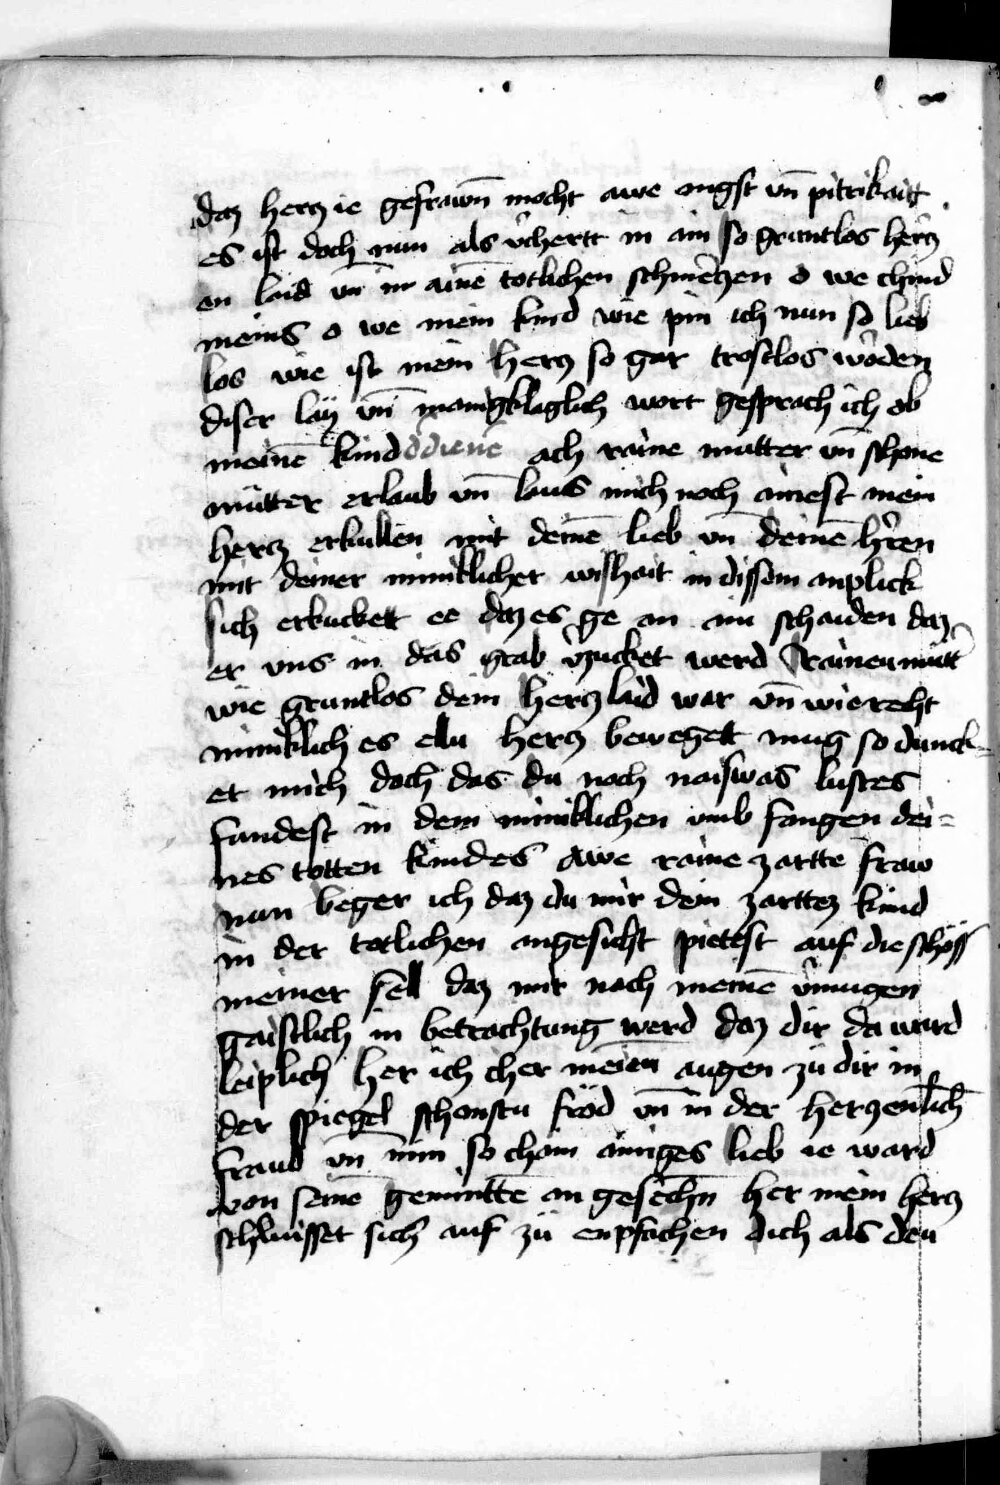 daz hercz ie gefrawn̄ mocht awe angst vn̄ pitrikaitt
es ist doch nun als v̉chertt in ain so gruntlos hercz
en laid vn̄ in ainē totlichen schmerczen o we chind
meins o we mein kind wie pin ich nun so lieb
los wie ist mein hercz so gar trostlos wordē
diser lay vn̄ manigklaglich wort gesprach ich ob
meinē kind ach raine mutter vn̄ schone
mutter erlaub vn̄ laus mich noch ainest mein
hercz erkullen mit deinē lieb vn̄ deinē hr̄en
mit deiner miniklicher wishait in dissem anplick
sich erkuckett ee daz es ge an ain schaiden daz
er vns in das grab v̉zucket werd O rainen mutt̉
wie gruntlos dein hercz laid war vn̄ wie recht
miniklich es ellu hercz bewegett mug so dunck-
et mich doch das du noch naiswas lustes
fandest in dem miniklichen vmb fangen dei-
nes totten kindes awe raine zartte fraw
nun beger ich daz du mir dein zarttez kind
in der totlichen angesicht pietest auf die schoss
meiner sell daz mir nach meinē v̉mugen
gaistlich in betrachtung werd daz dir da ward
leiplich her ich cher meien augen zu dir in
der spiegel schonstn frod vn̄ in der herczenlich
fraud vn̄ min so chain ainiges lieb ie ward
von seinē gemintte an gesechn̄ her mein hercz
schlusset sich auf zu enpfachen dich als den